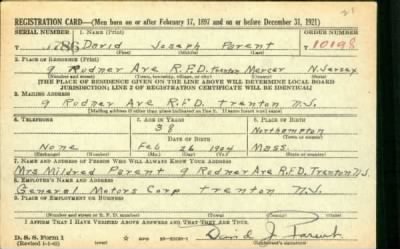 21
REGISTRATION CARD—(Men born on or after February 17, 1897 and on or before December 31, 1921)
SERIAL NUMBER 1. NAME (Print) ORDER NUMBER
786 David Joseph Parent 10198
(First) (Middle) (Last)
2. PLACE OF RESIDENCE (Print)
9 Rodmer Ave R.F.D. Trenton Mercer N. Jersey
(Number and street) (Town, township, village, or city) (County) (State)
[THE PLACE OF RESIDENCE GIVEN ON THE LINE ABOVE WILL DETERMINE LOCAL BOARD
JURISDICTION; LINE 2 OF REGISTRATION CERTIFICATE WILL BE IDENTICAL]
3. MAILING ADDRESS
9 Rodmer Ave R.F.D. Trenton N.J.
[Mailing address if other than place indicated on line 2. If same insert word same]
4. TELEPHONE 5. AGE IN YEARS 6. PLACE OF BIRTH
38 Northampton
DATE OF BIRTH (Town or county)
None Feb 26 1904 Mass.
(Exchange) (Number) (Mo.) (Day) (Yr.) (State or country)
7. NAME AND ADDRESS OF PERSON WHO WILL ALWAYS KNOW YOUR ADDRESS
Mrs Mildred Parent 9 Rodmer Ave R.F.D. Trenton N.J.
8. EMPLOYER'S NAME AND ADDRESS
General Motors Corp Trenton N.J.
9. PLACE OF EMPLOYMENT OR BUSINESS
(Number and street or R. F. D. number) (Town) (County) (State)
I AFFIRM THAT I HAVE VERIFIED ABOVE ANSWERS AND THAT THEY ARE TRUE.
D. S. S. Form 1
(Revised 1-1-42) (over) GPO David J. Parent